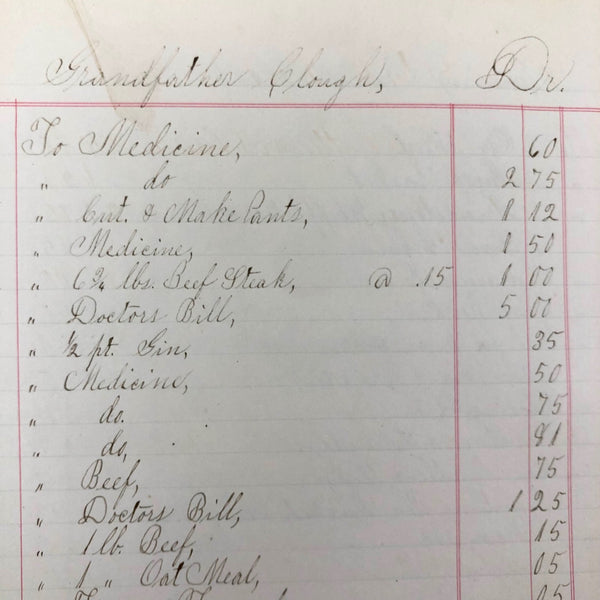 Grandfather Clough, Dr.
To Medicine, 60
" do 2 75
" Cut. & Make Pants, 1 12
" Medicine, 1 50
" 6 3/4 lbs. Beef Steak, @ .15 1 00
" Doctors Bill, 5 00
" 1/2 pt. Gin, 35
" Medicine, 50
" do. 75
" do, 91
" Beef, 75
" Doctors Bill, 1 25
" 1 lb. Beef, 15
" 1 " Oat Meal, 05